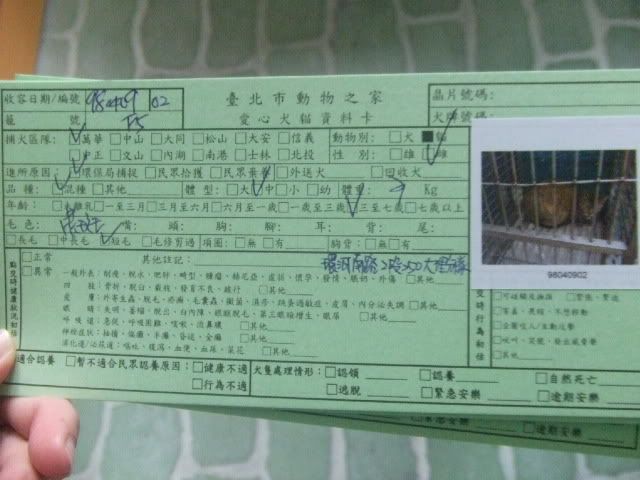 臺北市動物之家
愛心犬貓資料卡
收容日期/編號 980409 02
晶片號碼:
籠號 F5
犬牌號碼:
捕犬區隊: 萬華 □中山 □大同 □松山 □大安 □信義 動物別: □犬 ■貓
□中正 □文山 □內湖 □南港 □士林 □北投 性別: □雄
進所原因: 環保局捕捉 □民眾拾獲 □民眾棄養 □外送犬 □回收犬
品種: 混種 □其他 體型: □大 □中 □小 □幼 體重: Kg
年齡: □離乳 □一至三月 □三月至六月 □六月至一歲 □一歲至三歲 □三至七歲 □七歲以上
毛色: 背: 頭: 胸: 腳: 耳: 背: 尾:
□長毛 □中長毛 □短毛 □毛修剪過 項圈: □無 □有 胸背: □無 □有
點交時健康狀況初估
□正常
□異常
其他註記:
環河南路2段250
一般外表: 削瘦、脫水、肥胖、畸型、腫瘤、赫尼亞、虛弱、懷孕、發情、脹奶、外傷 □其他
四肢: 骨折、脫臼、截肢、發育不良、跛行 □其他
皮膚: 外寄生蟲、脫毛、疥癬、毛囊蟲、黴菌、濕疹、跳蚤過敏症、皮屑、內分泌失調 □其他
眼睛: 失明、萎縮、脫出、白內障、眼瞼脫毛、第三眼瞼增生、眼屎 □其他
呼吸道: 急促、呼吸困難、咳嗽、流鼻膿 □其他
神經症狀: 抽搐、偏癱、半癱、昏迷、全癱 □其他
消化道/泌尿道: 嘔吐、腹瀉、血便、血尿、尿結 □其他
98040902
交時行為初估
適合認養 □暫不適合民眾認養原因: □健康不適
□行為不適
犬隻處理情形: □認領 □認養 □自然死亡
□逃脫 □緊急安樂 □逾期安樂
逾期安樂